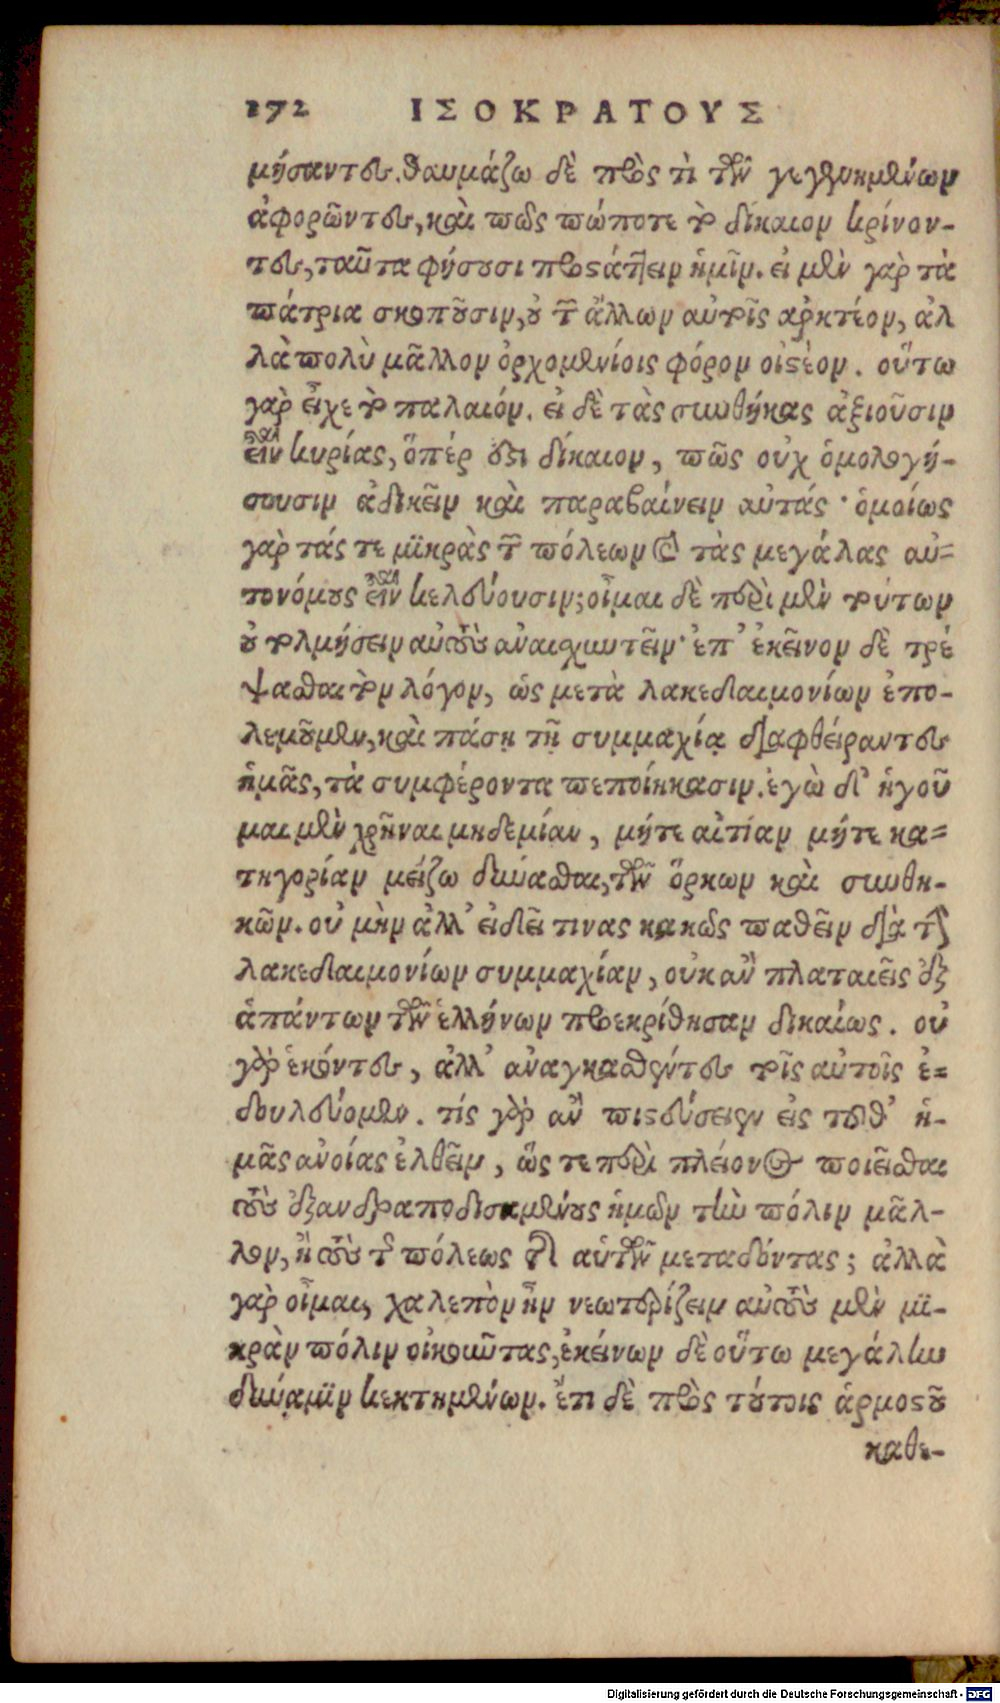 172 ΙΣΟΚΡΑΤΟΥΣ
μήσαντες. θαυμάζω δὲ πρὸς τὶ τῶν γεγενημένων
ἀφορῶντες, καὶ πῶς πώποτε τὸ δίκαιον κρίνον-
τες, ταῦτα φήσουσι προστάττειν ἡμῖν. εἰ μὲν γὰρ τὰ
πάτρια σκοποῦσιν, οὐ τῶν ἄλλων αὐτοῖς ἀρκτέον, ἀλ
λὰ πολὺ μᾶλλον ὀρχομενίοις φόρον οἰστέον. οὕτω
γὰρ εἶχε τὸ παλαιόν. εἰ δὲ τὰς συνθήκας ἀξιοῦσιν
εἶναι κυρίας, ὅπέρ ἐστι δίκαιον, πῶς οὐχ ὁμολογή-
σουσιν ἀδικεῖν καὶ παραβαίνειν αὐτάς· ὁμοίως
γὰρ τάς τε μικρὰς τῶν πόλεων καὶ τὰς μεγάλας αὐ-
τονόμους εἶναι κελεύουσιν; οἶμαι δὲ περὶ μὲν τούτων
οὐ τολμήσειν αὐτοὺς ἀναισχυντεῖν· ἐπ' ἐκεῖνον δὲ τρέ
ψασθαι τὸν λόγον, ὡς μετὰ λακεδαιμονίων ἐπο-
λεμοῦμεν, καὶ πάσῃ τῇ συμμαχίᾳ διαφθείραντες
ἡμᾶς, τὰ συμφέροντα πεποίηκασιν. ἐγὼ δ' ἡγοῦ
μαι μὲν χρῆναι μηδεμίαν, μήτε αἰτίαν μήτε κα-
τηγορίαν μεῖζω δύνασθαι, τῶν ὅρκων καὶ συνθη-
κῶν. οὐ μὴν ἀλλ' εἰ δεῖ τινας κακῶς παθεῖν διὰ τὴν
λακεδαιμονίων συμμαχίαν, οὐκ ἂν πλαταιεῖς ἐξ
ἁπάντων τῶν ἑλλήνων προεκρίθησαν δικαίως. οὐ
γὰρ ἑκόντες, ἀλλ' ἀναγκασθέντες τοῖς αὐτοῖς ἐ-
δουλεύομεν. τίς γὰρ ἂν πιστεύσειεν εἰς τοῦθ' ἡ-
μᾶς ἀνοίας ἐλθεῖν, ὥς τε περὶ πλείονος ποιεῖσθαι
τοὺς ἐξανδραποδισαμένους ἡμῶν τὴν πόλιν μᾶλ-
λον, ἢ τοὺς τῆς πόλεως τῆς αὑτῶν μεταδόντας; ἀλλὰ
γὰρ οἶμαι, χαλεπὸν ἦν νεωτερίζειν αὐτοὺς μὲν μι-
κρὰν πόλιν οἰκοῦντας, ἐκείνων δὲ οὕτω μεγάλην
δύναμιν κεκτημένων. ἔτι δὲ πρὸς τούτοις ἁρμοστοῦ
καθε-
Digitalisierung gefördert durch die Deutsche Forschungsgemeinschaft - DFG